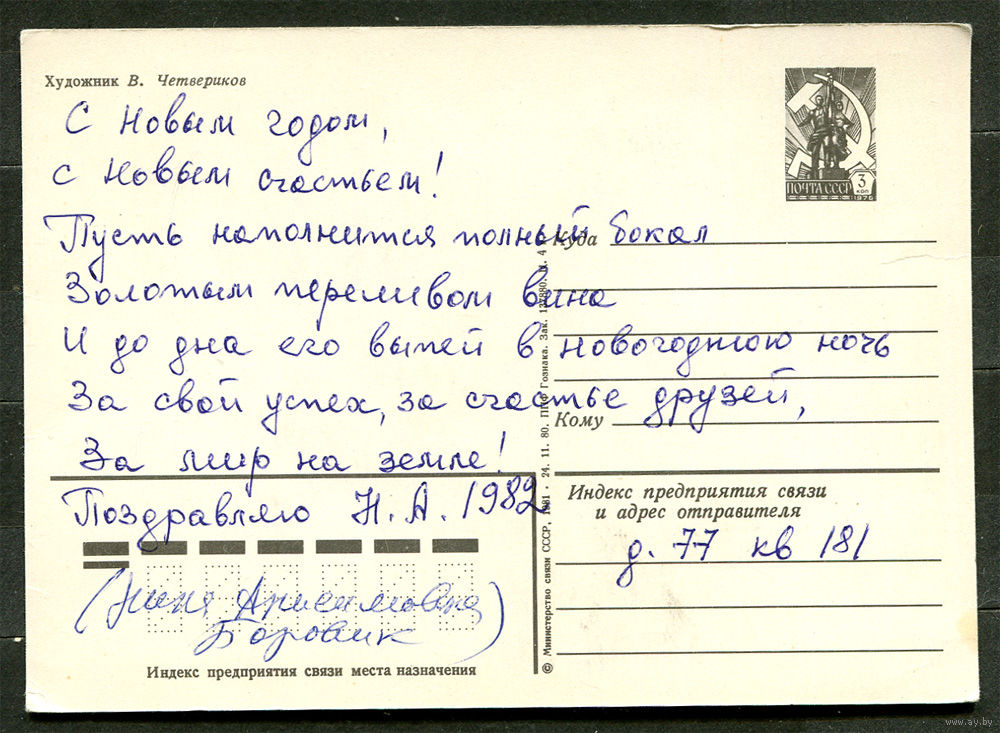 Художник В. Четвериков
С Новым годом,
с Новым счастьем!
Пусть наполнится полный бокал
Золотым переливом вина
И до дна его выпей в новогоднюю ночь
За свой успех, за счастье друзей,
За мир на земле!
Поздравляю Н. А. 1982
(Нина Анисимовна
Боровик)
Индекс предприятия связи места назначения
ПОЧТА СССР
3 коп
1976
Куда
Кому
Индекс предприятия связи
и адрес отправителя
д. 77 кв 181
© Министерство связи СССР, 1981 · 24. 11. 80. ППФ Гознака. Зак.
www.ay.by